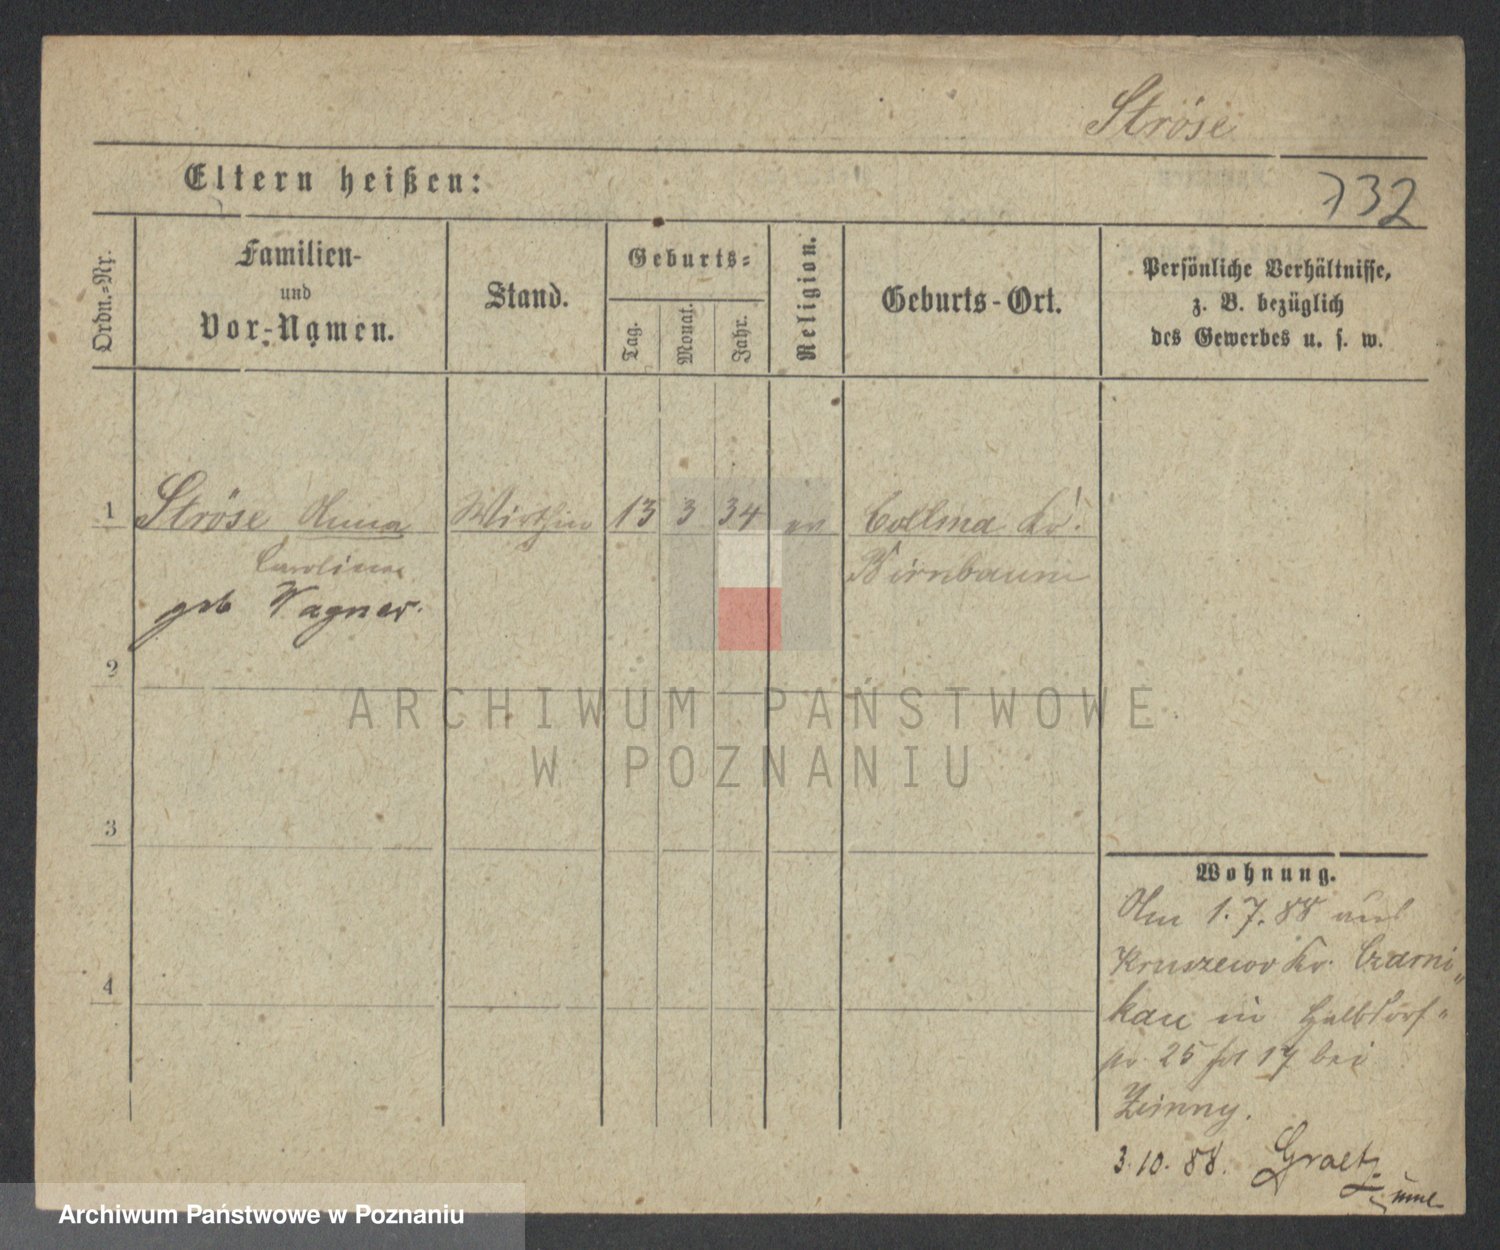 Ströse
732
Eltern heißen:
Ordn.-Nr.
Familien-
und
Vor-Namen.
Stand.
Geburts-
Tag.
Monat.
Jahr.
Religion.
Geburts-Ort.
Persönliche Verhältnisse,
z. B. bezüglich
des Gewerbes u. s. w.
1 Ströse Anna Wirthin 13 3 34 ev Collma Kr.
Carolina Birnbaum
geb Wagner.
2
ARCHIWUM PAŃSTWOWE
W POZNANIU
3
4
Wohnung.
Am 1.7.88 aus
Kruszewo Kr. Czarni-
kau in Halbdorf-
25 17 bei
Zimny.
3.10.88. Graetz
Archiwum Państwowe w Poznaniu